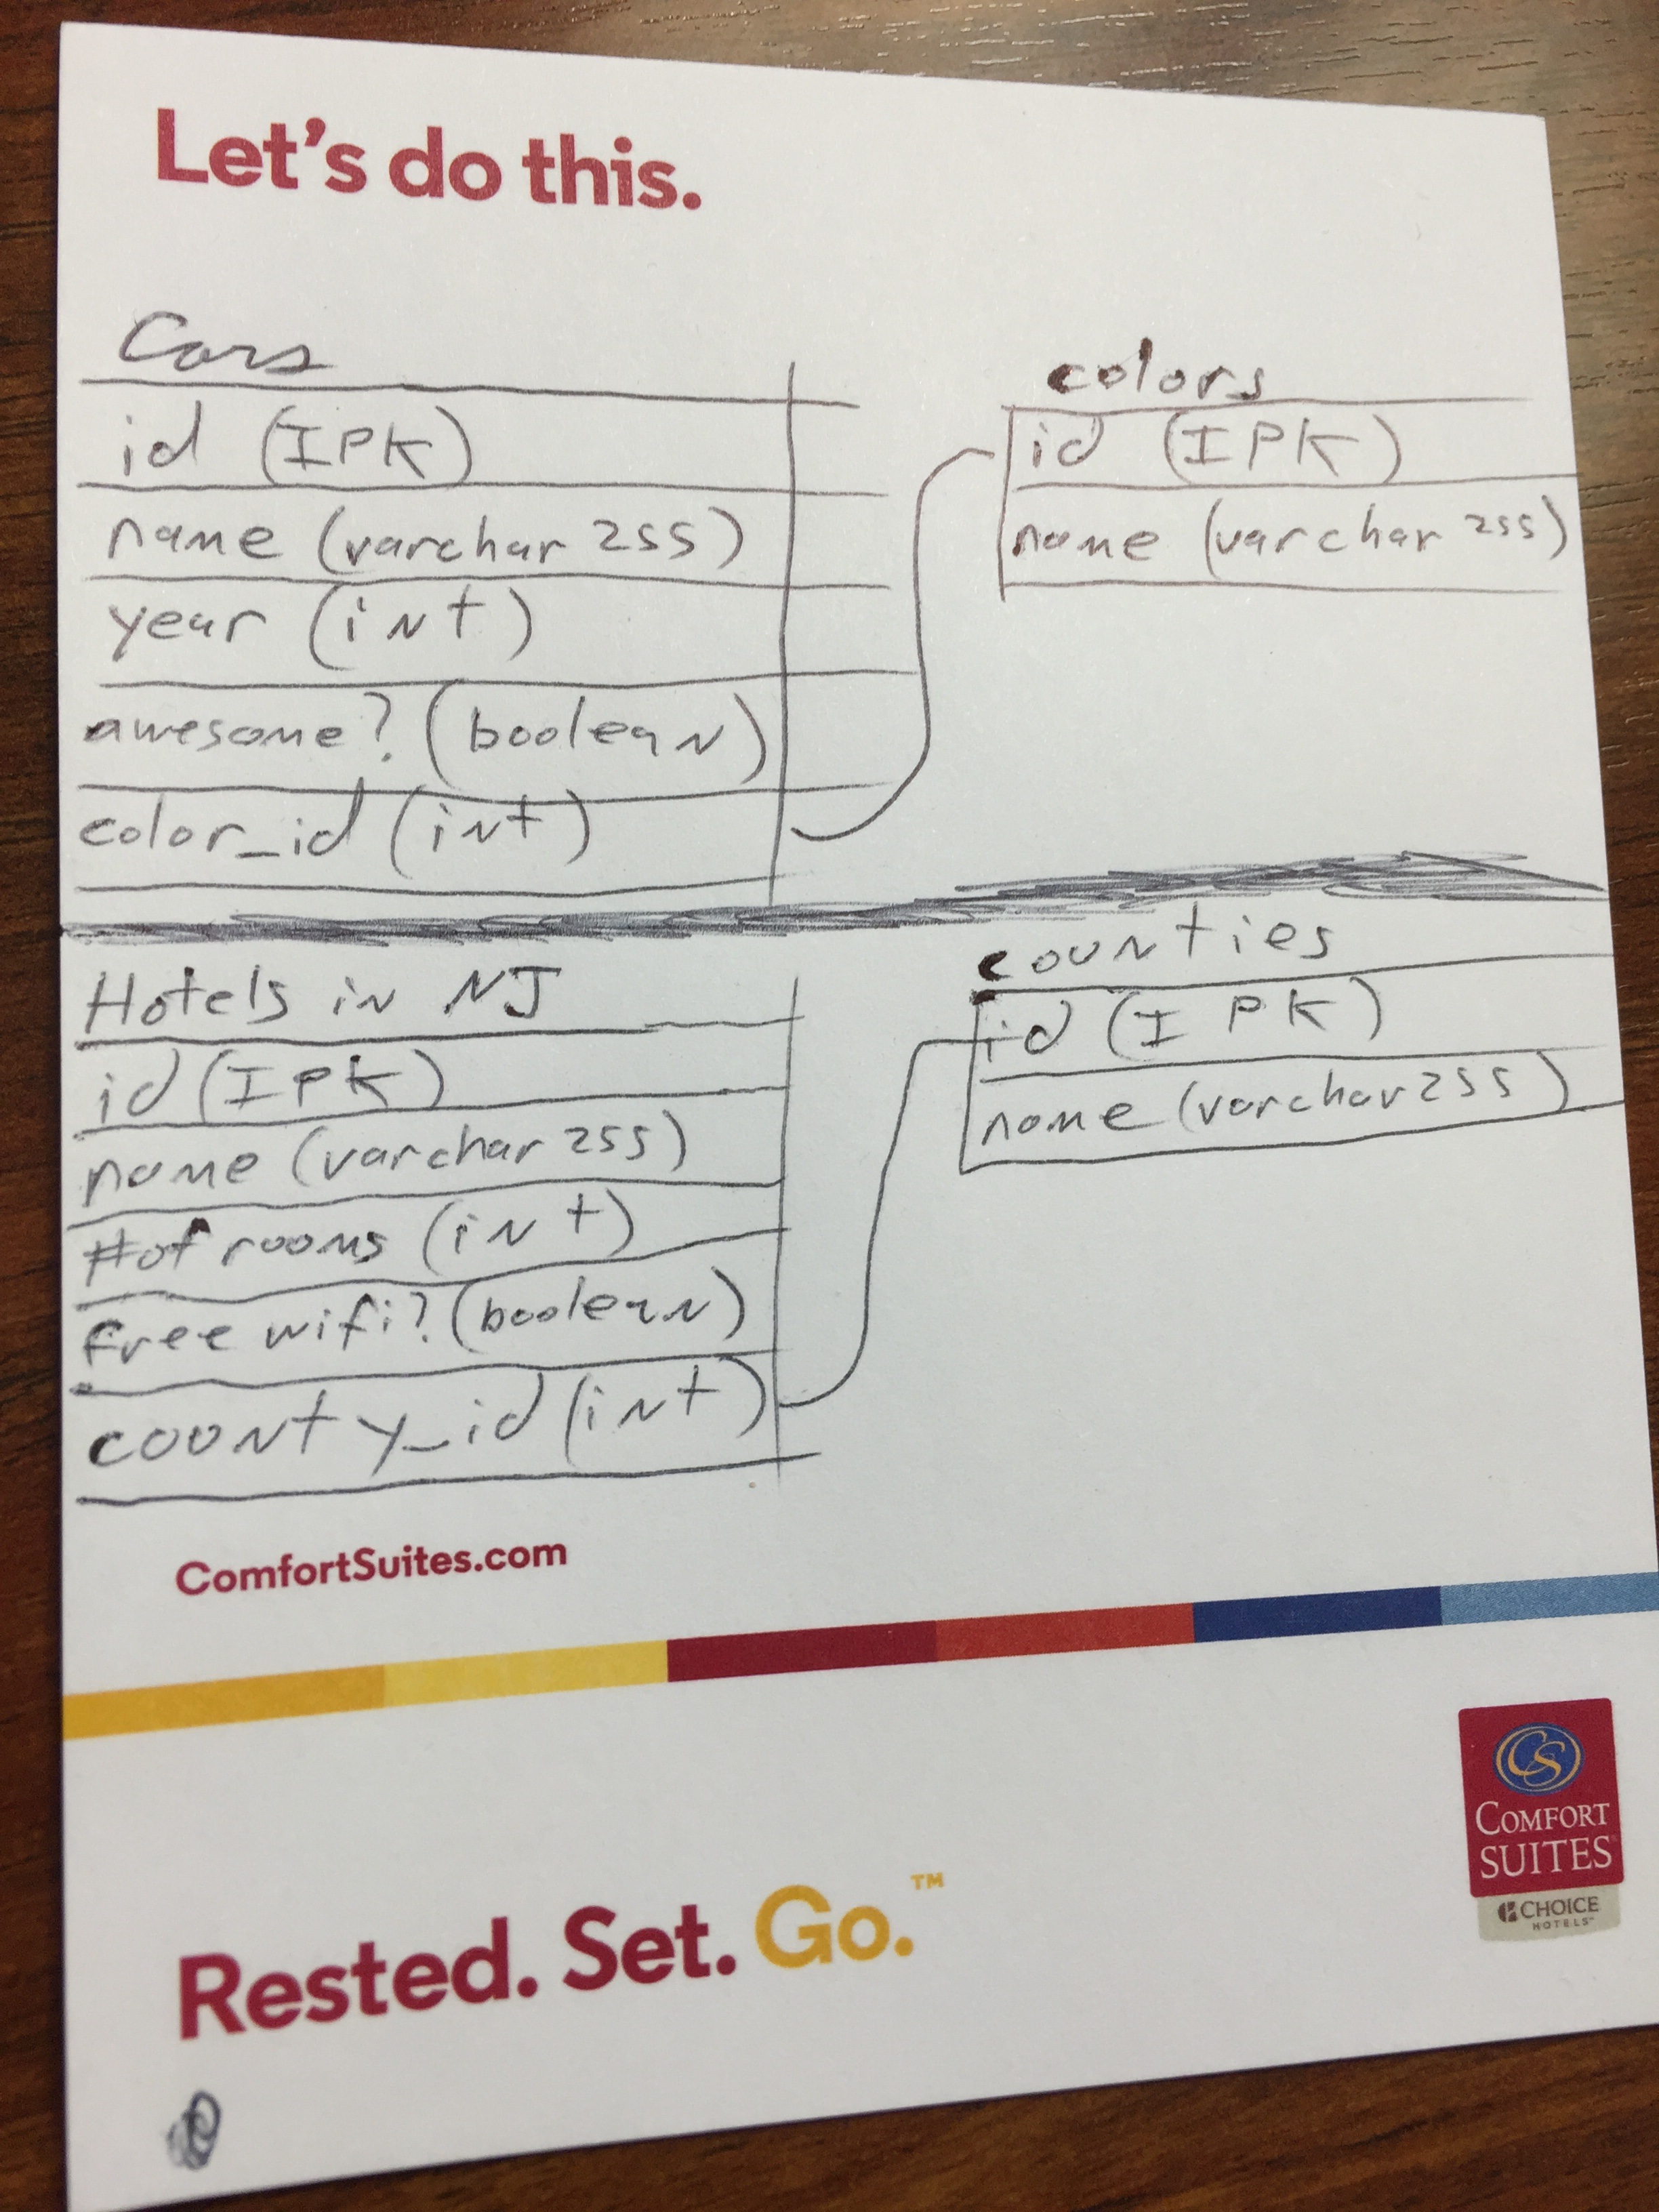 Let's do this.
Cars
id (IPK)
name (varchar 255)
year (int)
awesome? (boolean)
color_id (int)
colors
id (IPK)
name (varchar 255)
Hotels in NJ
id (IPK)
name (varchar 255)
# of rooms (int)
free wifi? (boolean)
county_id (int)
counties
id (IPK)
name (varchar 255)
ComfortSuites.com
Rested. Set. Go.™
CS
COMFORT
SUITES
CHOICE
HOTELS™